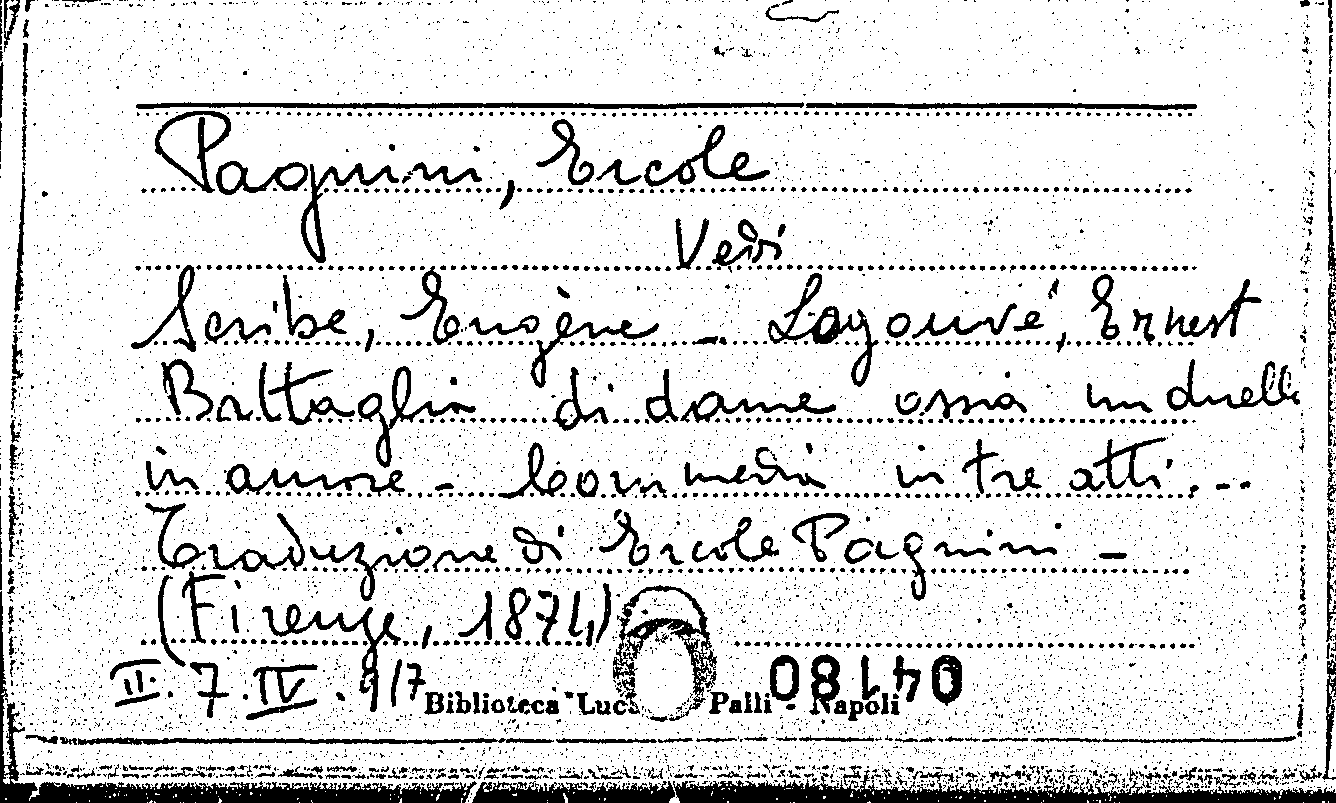 Pagnini, Ercole
Vedi
Scribe, Eugène - Legouvé, Ernest
Battaglia di dame ossia un duello
in amore - Commedia in tre atti...
Traduzione di Ercole Pagnini -
(Firenze, 1874)
II. 7. IV. 9/7
Biblioteca "Lucchesi Palli - Napoli
04180